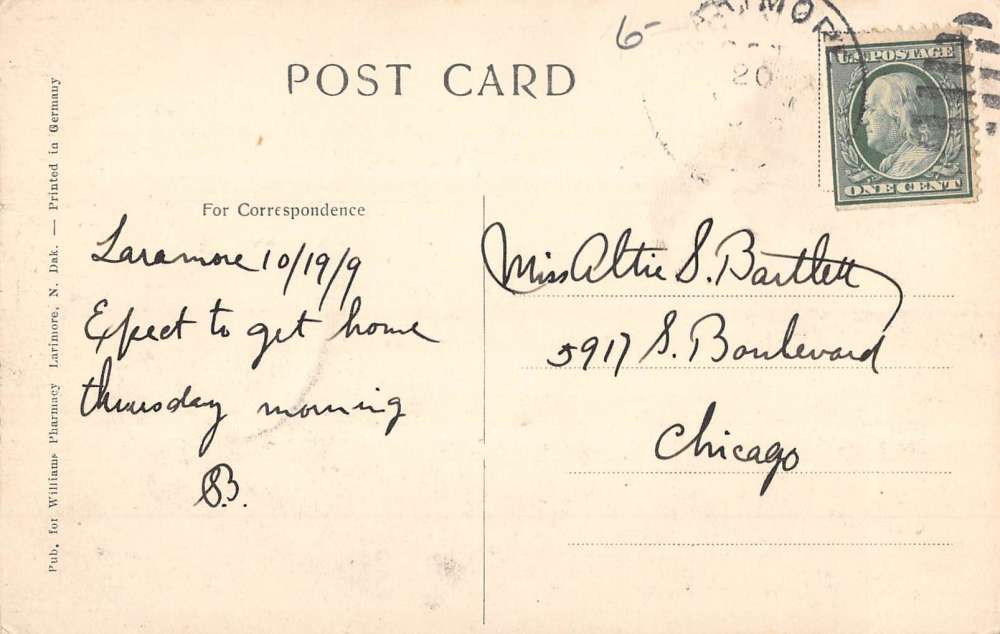 6-
20
U.S. POSTAGE
ONE CENT
POST CARD
For Correspondence
Laramore 10/19/9
Expect to get home
thursday morning
B.
Miss Altie S. Bartlett
5917 S. Boulevard
Chicago
Pub. for Williams Pharmacy Larimore, N. Dak. — Printed in Germany